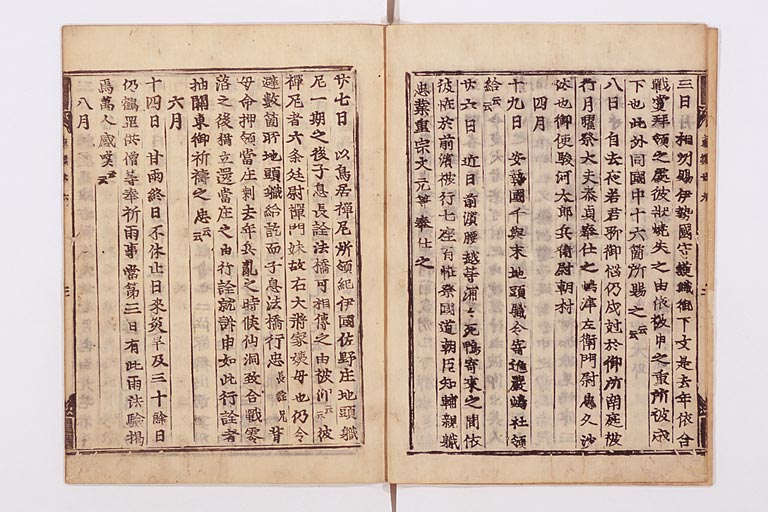 三日 相州賜伊勢國守護職御下文是去年依合
戰賞拜領之處彼狀燒失之由依被申之重所被成
下也此外同國中十六箇所賜之云云
八日 自去夜若君聊御惱仍戌尅於御所南庭被
行月曜祭大夫泰貞奉仕之嶋津左衛門尉忠久沙
汰也御使駿河太郎兵衛尉朝村
四月
十九日 安藝國千與末地頭職令寄進嚴嶋社領
給云云
廿六日 近日前濱腰越等浦々死鴨寄來之間依
彼恠於前濱被行七座百恠祭國道朝臣知輔親職
忠業重宗文元等奉仕之
廿七日 以鳥居禪尼所領紀伊國佐野庄地頭職
尼一期之後子息長詮法橋可相傳之由被
禪尼者六条廷尉禪門妹故右大將家姨母也仍令
避數箇所地頭職給訖而子息法橋行忠長詮兄背
母命押領當庄剩去年兵亂之時候仙洞致合戰零
落之後猶立還當庄之由行詮就訴申如此行詮者
抽關東御祈禱之忠云云
六月
十四日 甘雨終日不休止日來炎旱及三十餘日
仍鶴岡供僧等奉祈雨事當第三日有此雨法驗揭
焉萬人感嘆云云
八月